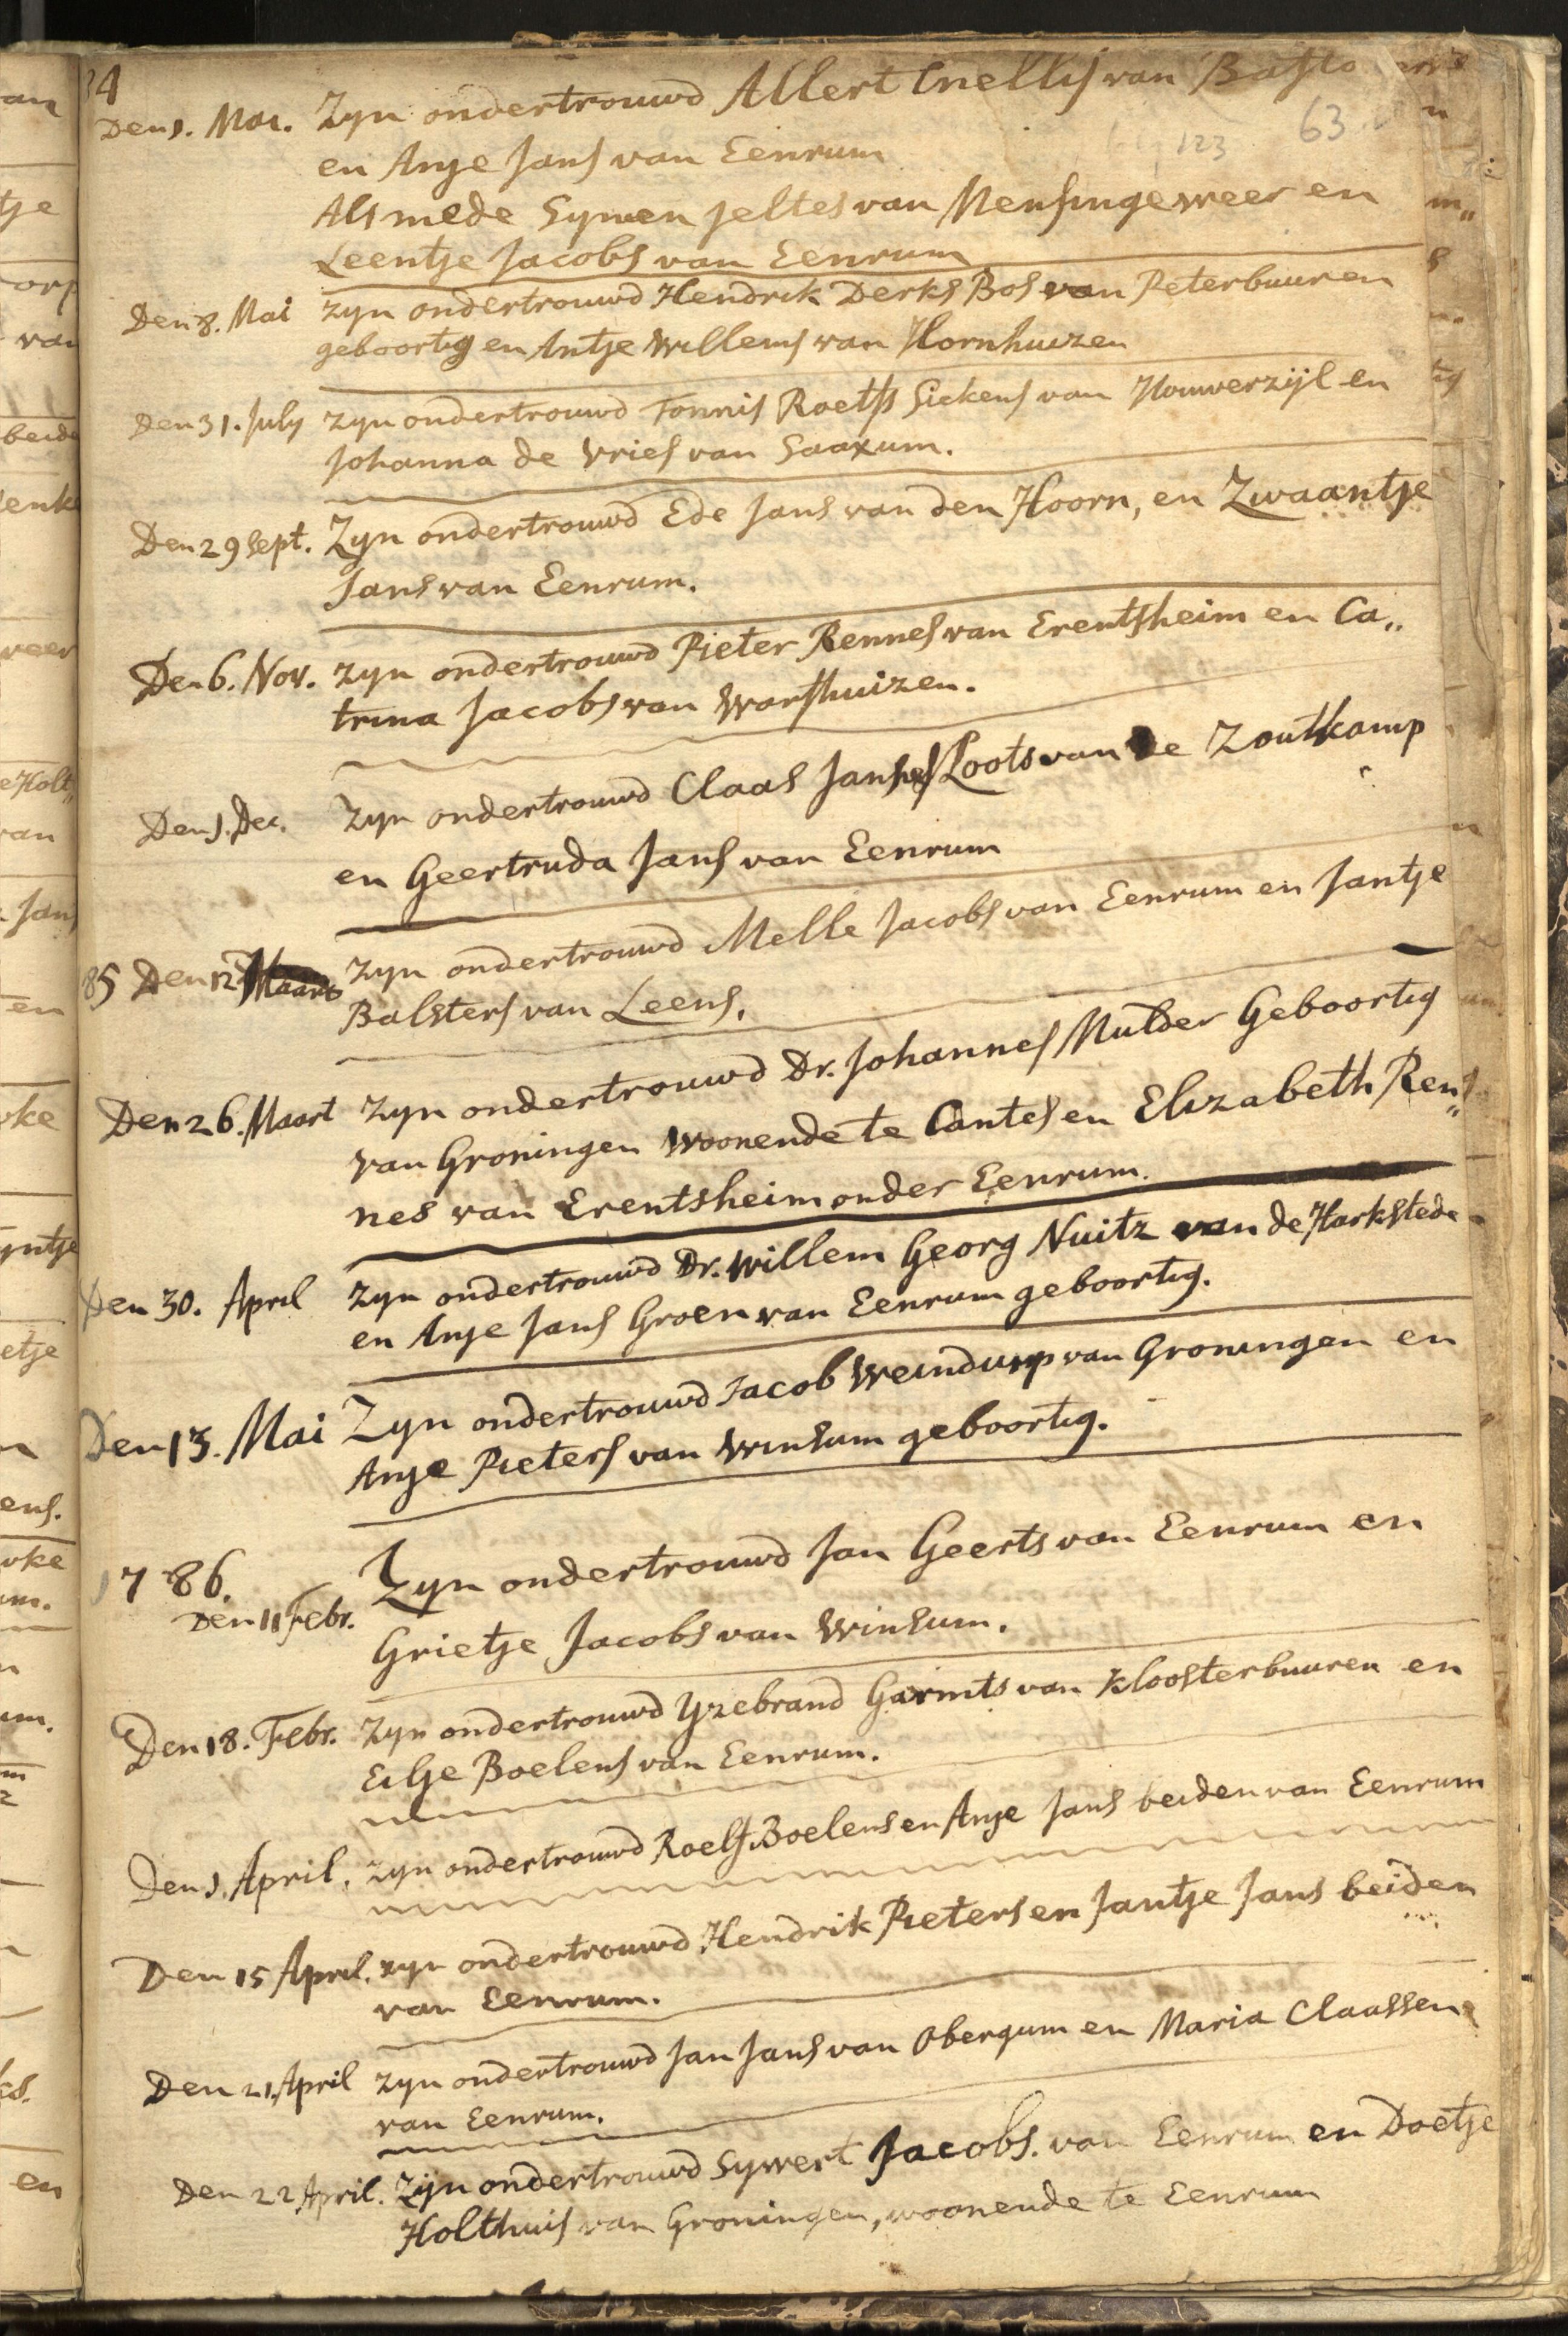 84
Den 1. Mai. Zyn ondertrouwd Allert Cnellis van Baflo
63
123
en Anje Jans van Eenrum
Als mede Symen Jeltes van Mensingeweer en
Leentje Jacobs van Eenrum
Den 8. Mai zyn ondertrouwd Hendrik Derks Bos van Peterbuuren
geboortig en Antje Willems van Hornhuizen
Den 31. July zyn ondertrouwd Tonnis Roelfs Siekens van Houwerzijl en
Johanna de Vries van Saaxum.
Den 29 Sept. Zyn ondertrouwd Ede Jans van den Hoorn, en Zwaantje
Jans van Eenrum.
Den 6. Nov. zyn ondertrouwd Pieter Rennes van Erentsheim en Ca„
trina Jacobs van Warfhuizen.
Den 1. Dec. Zyn ondertrouwd Claas Janses Loots van de Zoutkamp
en Geertruda Jans van Eenrum
85 Den 12 Maart zyn ondertrouwd Melle Jacobs van Eenrum en Jantje
Balsters van Leens.
Den 26. Maart zyn ondertrouwd Dr. Johannes Mulder Geboortig
van Groningen woonende te Cantes en Elizabeth Ren„
nes van Erentsheim onder Eenrum.
Den 30. April zyn ondertrouwd Dr. Willem Georg Nuitz van de Harkstede
en Anje Jans Groen van Eenrum geboortig.
Den 13. Mai Zyn ondertrouwd Jacob Weindurp van Groningen en
Anje Pieters van Winsum geboortig.
1786.
Den 11 Febr. Zyn ondertrouwd Jan Geerts van Eenrum en
Grietje Jacobs van Winsum.
Den 18. Febr. Zyn ondertrouwd Yzebrand Garmts van Kloosterbuuren en
Eilje Boelens van Eenrum.
Den 1. April. zyn ondertrouwd Roelf Boelens en Anje Jans beiden van Eenrum
Den 15 April. zyn ondertrouwd Hendrik Pieters en Jantje Jans beiden
van Eenrum.
Den 21. April zyn ondertrouwd Jan Jans van Obergum en Maria Claassen
van Eenrum.
Den 22 April. Zijn ondertrouwd Sywert Jacobs. van Eenrum en Doetje
Holthuis van Groningen, woonende te Eenrum